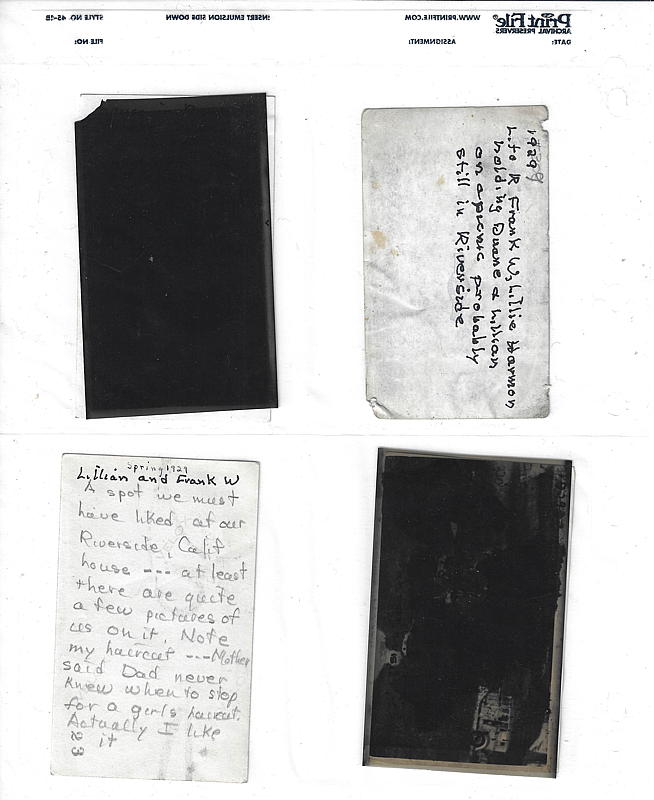 Print File®
ARCHIVAL PRESERVERS
WWW.PRINTFILE.COM
INSERT EMULSION SIDE DOWN
STYLE NO. 45-1B
DATE:
ASSIGNMENT:
FILE NO:
1929
L. to R Frank W, Lillie Harmon
holding Duane & Lillian
on a picnic probably
still in Riverside
Spring 1929
Lillian and Frank W
A spot we must
have liked at our
Riverside, Calif
house --- at least
there are quite
a few pictures of
us on it. Note
my haircut --- Mother
said Dad never
knew when to stop
for a girls haircut.
Actually I like
it